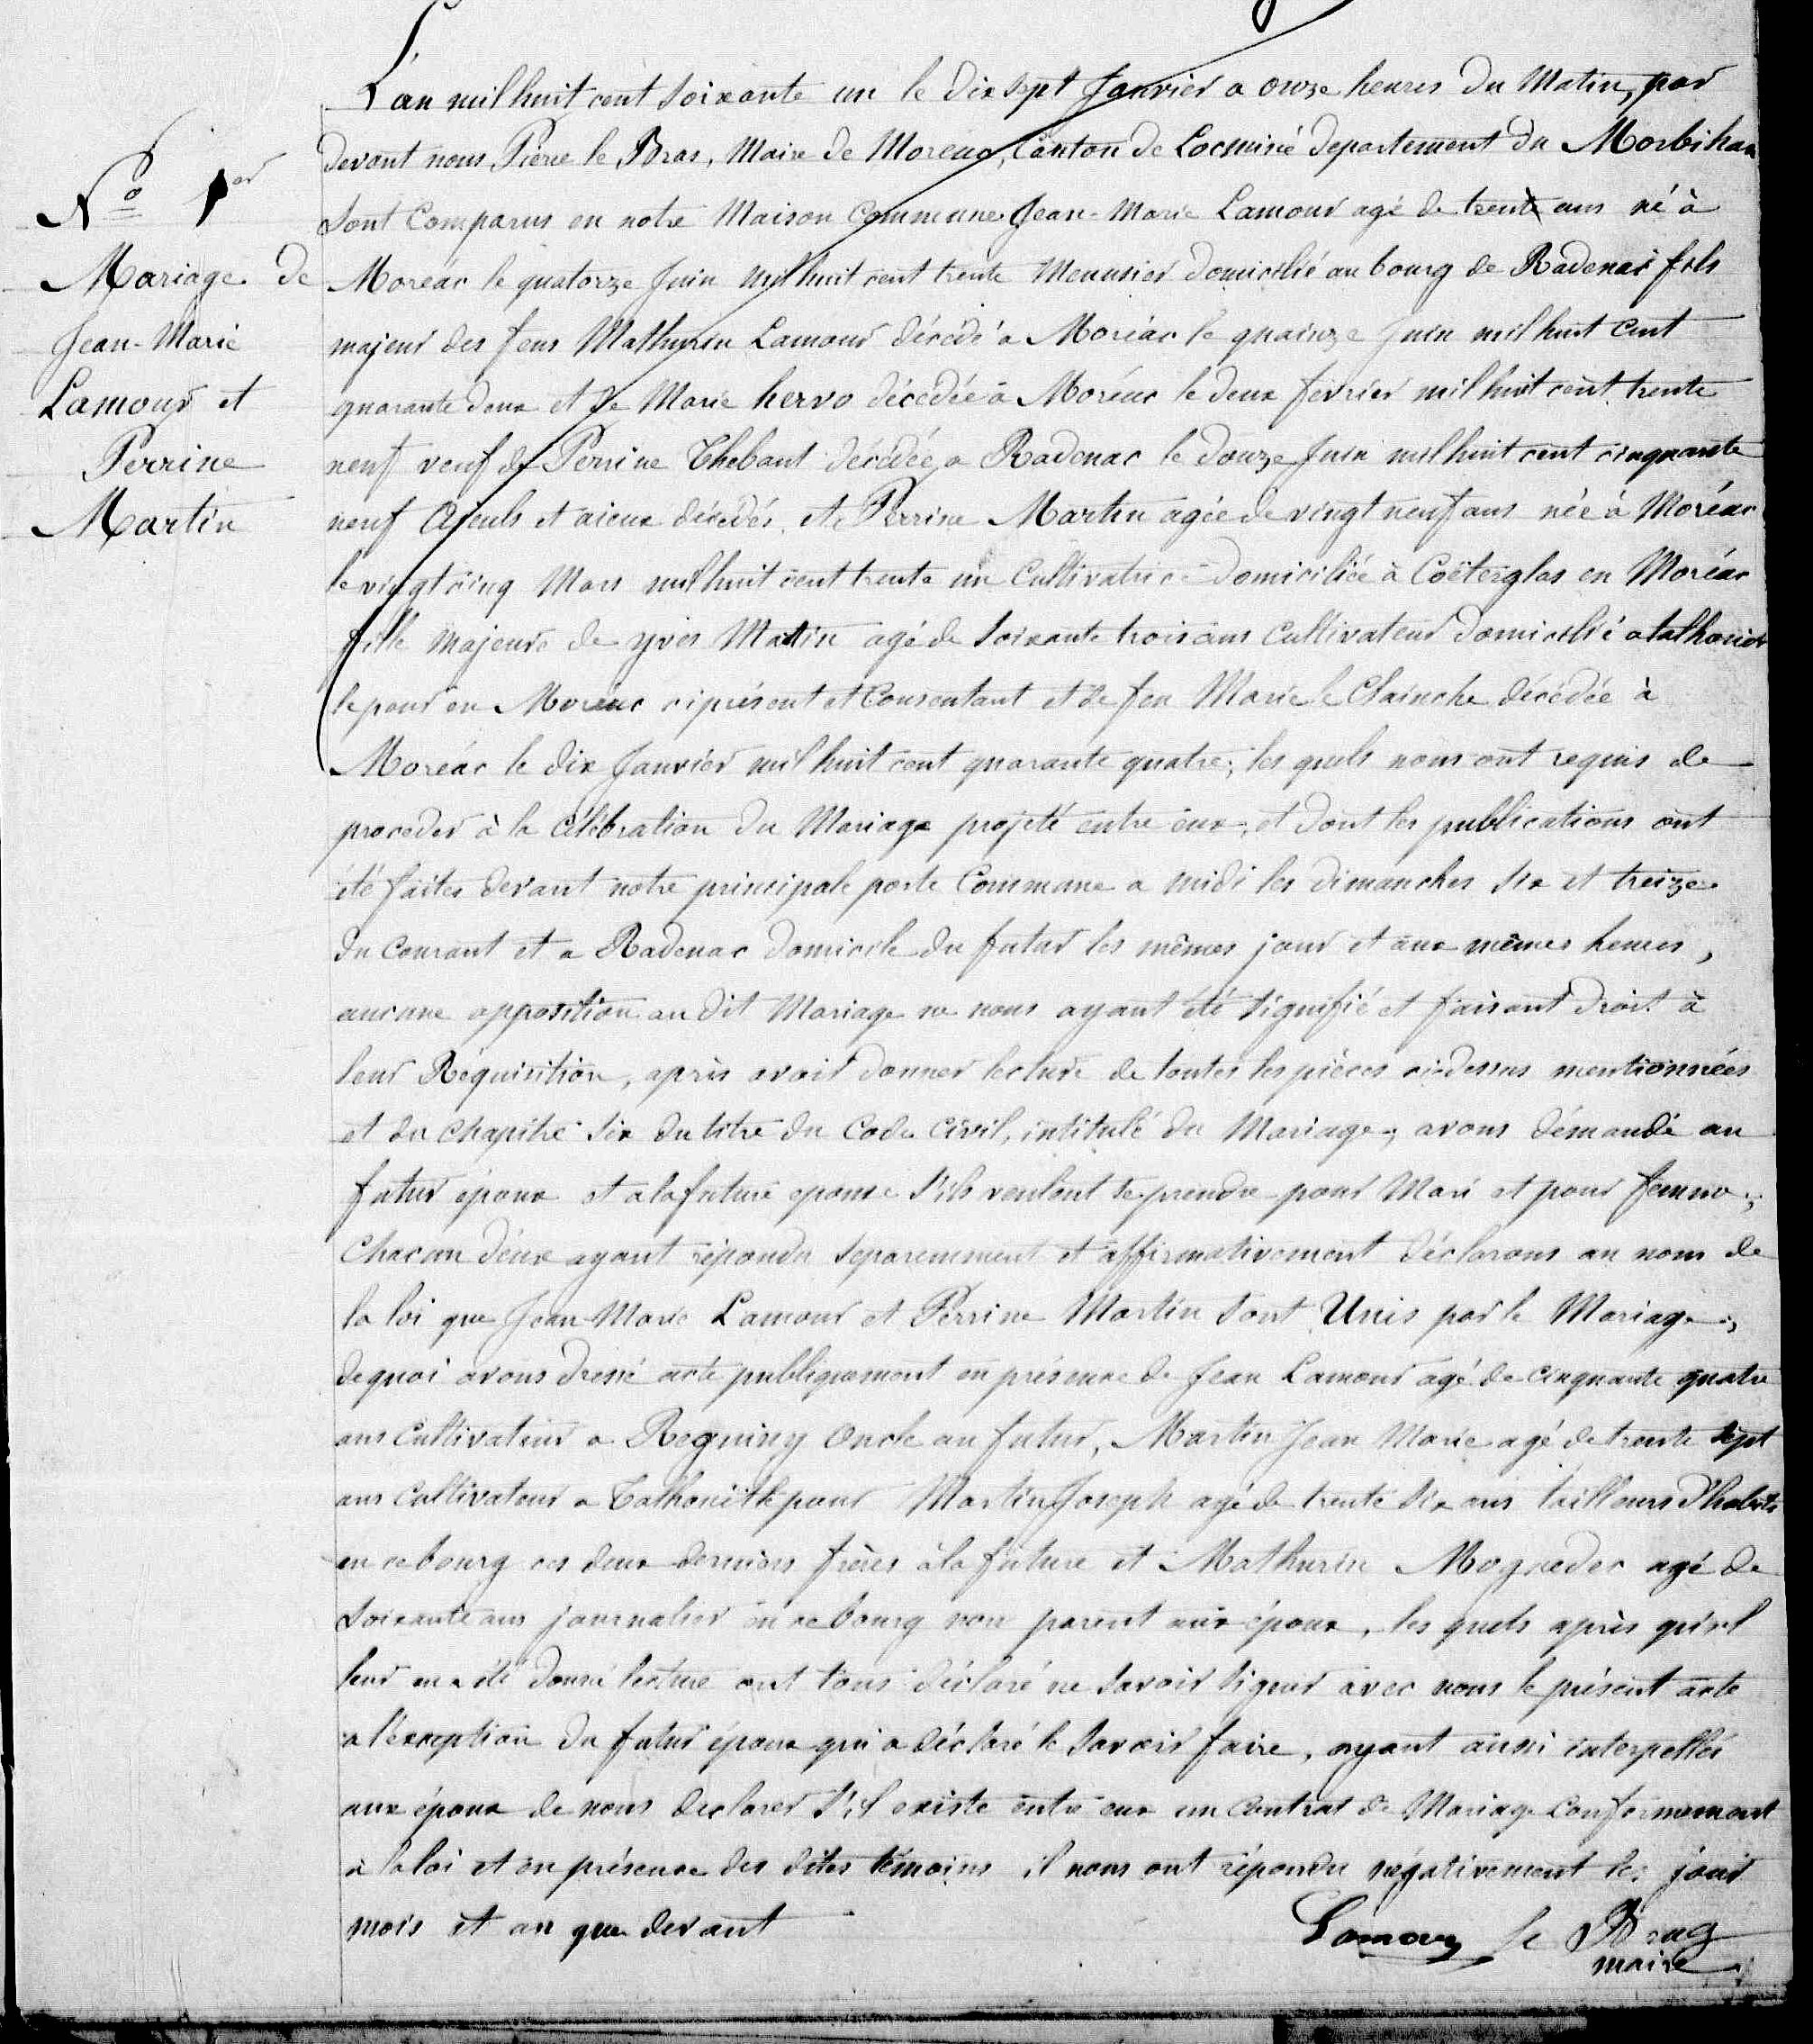 L'an mil huit cent soixante un le dix sept Janvier a onze heures du Matin, par
devant nous Pierre le Bras, Maire de Moréac, Canton de Locminé departement du Morbihan
sont Comparus en notre Maison Commune Jean-Marie Lamour agé de trente ans né à
Moréac le quatorze Juin mil huit cent trente Menusier domicilié au bourg de Radenac fils
majeur des feus Mathurin Lamour décédé à Moréac le quainze Juin mil huit cent
quarante deux et de Marie hervo décédée à Moréac le deux fevrier mil huit cent trente
neuf veuf de Perrine Thebaut décédée a Radenac le douze Juin mil huit cent cinquante
neuf Ajeuls et aieux décédés, et Perrine Martin agée de vingt neuf ans née à Moréac
le vingt cinq Mars mil huit cent trente un Cultivatrice domiciliée à Coëterglas en Moréac
fille Majeure de yves Martin agé de soixante trois ans Cultivateur domicilié a talhouiet
le pour en Moréac ci présent et Consentant et de feu Marie le Clainche décédée à
Moréac le dix Janvier mil huit cent quarante quatre; les quels nous ont requis de
proceder à la célébration du Mariage projeté entre eux, et dont les publications ont
été faites devant notre principale porte Commune a midi les dimanches six et treize
du courant et a Radenac domicile du futur les mêmes jour et aux mêmes heures,
aucune opposition au dit Mariage ne nous ayant été signifié et faisant droit à
leur Réquisition, après avoir donner lecture de toutes les pièces ci-dessus mentionnées
et du chapitre six du titre du Code Civil, intitulé du Mariage; avons démandé au
futur époux et a la future epouse s'ils veulent se prendre pour Mari et pour femme;
Chacun d'eux ayant répondu separemment et affirmativement déclarons au nom de
la loi que Jean Marie Lamour et Perrine Martin sont Unis par le Mariage;
de quoi avons dressé acte publiquement en présence de Jean Lamour agé de cinquante quatre
ans Cultivateur a Reguiny Oncle au futur, Martin Jean Marie agé de trente sept
ans Cultivateur a Talhouit le pour Martin Joseph agé de trente six ans tailleurs d'habits
en ce bourg ces deux derniers frères à la future et Mathurin agé de
soixante ans journalier en ce bourg non parent aux époux, les quels après qu'il
leur en a été donné lecture ont tous déclaré ne savoir signer avec nous le présent acte
a l'exception du futur époux qui a déclaré le savoir faire, ayant aussi interpellés
aux époux de nous declarer s'il existe entre eux un contrat de Mariage conformement
à la loi et en présence des dites témoins il nous ont répondu négativement les jour
mois et an que devant
Lamour le Bras
maire
N° 1er
Mariage de
Jean-Marie
Lamour et
Perrine
Martin